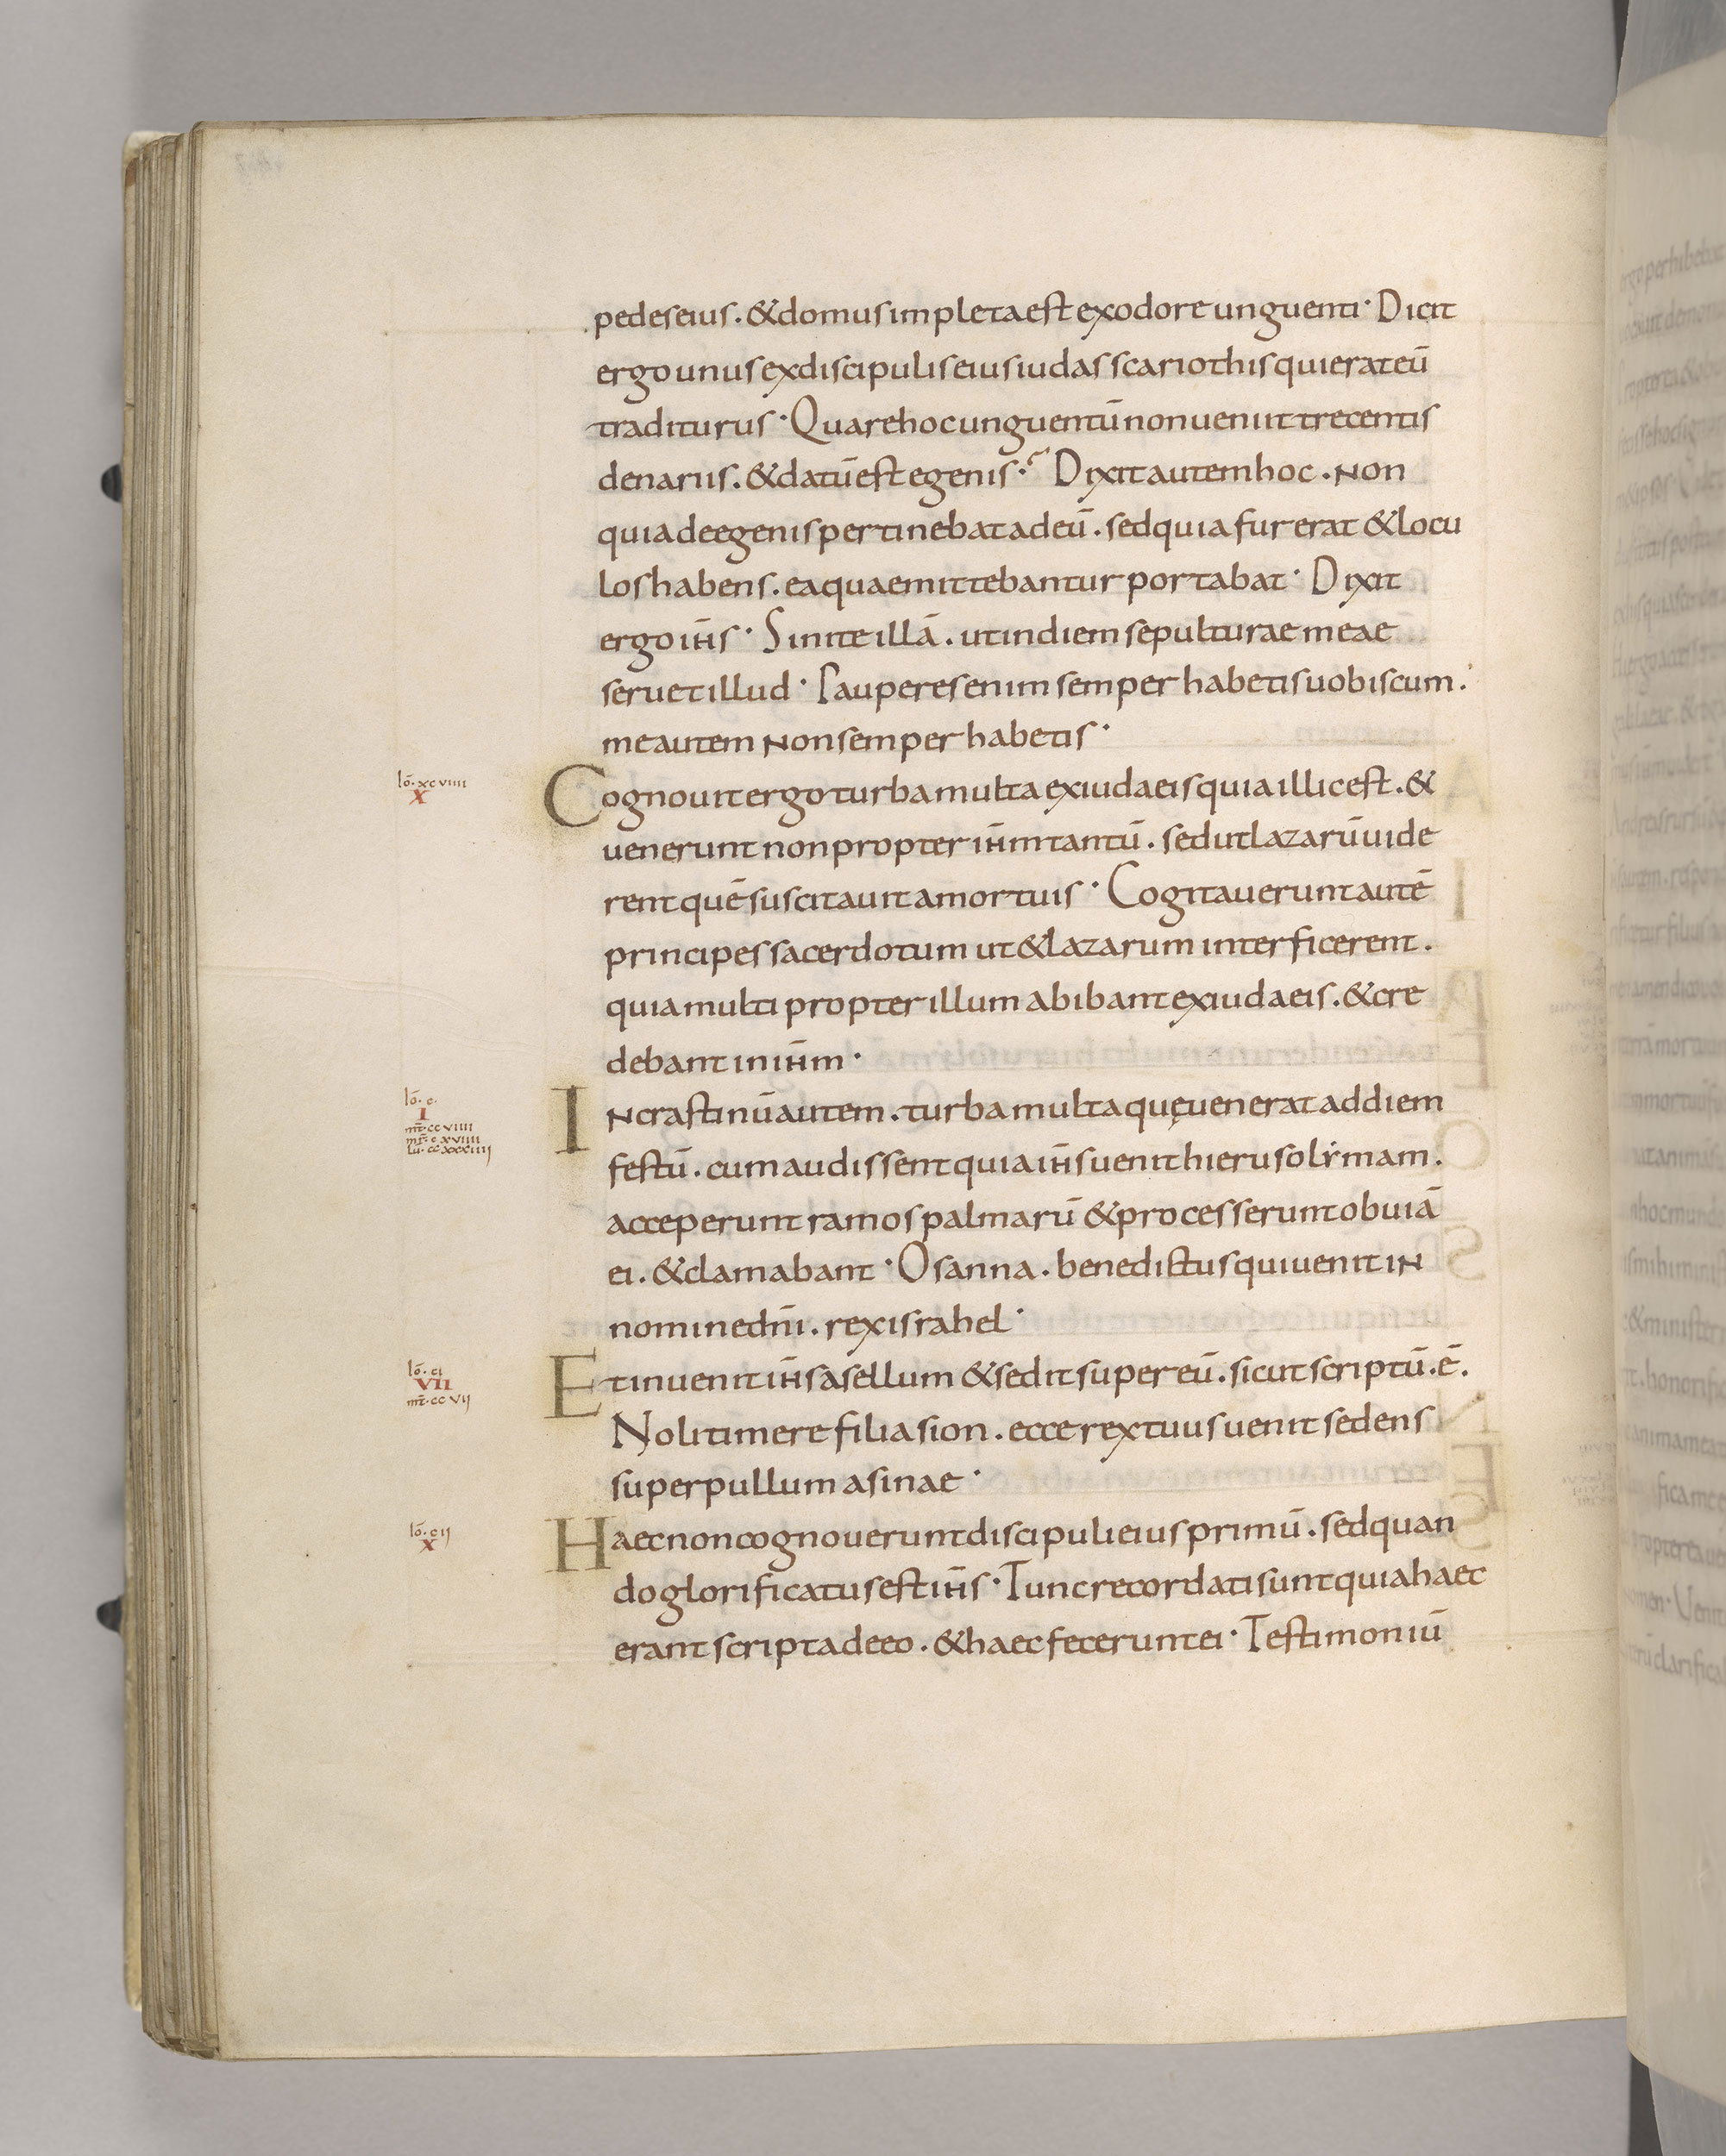 pedes eius. & domus impleta est ex odore unguenti· Dicit
ergo unus ex discipulis eius iudas scariothis qui erat eū
traditurus· Quare hoc unguentū non ueniit trecentis
denariis. & datū est egenis· Dixit autem hoc. Non
quia de egenis pertinebat ad eū. sed quia fur erat & locu
los habens. ea quae mittebantur portabat· Dixit
ergo ih̄s· Sinite illā. ut in diem sepulturae meae
seruet illud· Pauperes enim semper habetis uobiscum.
me autem Non semper habetis·
lō. xcviiii
X
Cognouit ergo turba multa ex iudaeis quia illic est. &
uenerunt non propter ih̄m tantū. sed ut lazarū uide
rent quē suscitauit a mortuis· Cogitauerunt autē
principes sacerdotum ut & lazarum interficerent.
quia multi propter illum abibant ex iudaeis. & cre
debant in ih̄m·
lō. c.
I
mt̄. ccviiii
mr̄. cxviiii
lu. ccxxxiiij
IN crastinū autem. turba multa quę uenerat ad diem
festū. cum audissent quia ih̄s uenit hierusolẏmam.
acceperunt ramos palmarū & processerunt obuiā
ei. & clamabant· Osanna. benedictus qui uenit iN
nomine dn̄i. rex israhel·
lō. ci
VII
mt̄. ccvij
Et inuenit ih̄s asellum & sedit super eū. sicut scriptū. ē.
Noli timere filia sion. ecce rex tuus uenit sedens
super pullum asinae·
lō. cij
X
Haec non cognouerunt discipuli eius primū. sed quan
do glorificatus est ih̄s· Tunc recordati sunt quia haec
erant scripta de eo. & haec fecerunt ei· Testimoniū